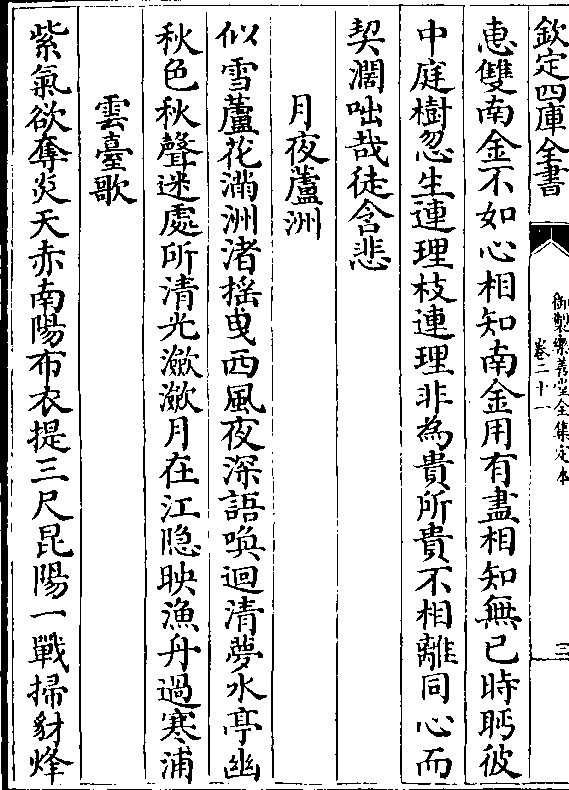 欽定四庫全書
御製樂善堂全集定本
卷二十一
三
惠雙南金不如心相知南金用有盡相知無已時眄彼
中庭樹忽生連理枝連理非為貴所貴不相離同心而
契濶咄哉徒含悲
月夜蘆洲
似雪蘆花滿洲渚摇曳西風夜深語喚迴清夢水亭幽
秋色秋聲迷處所清光瀲瀲月在江隐映漁舟過寒浦
雲臺歌
紫氣欲奪炎天赤南陽布衣提三尺昆陽一戰掃豺烽